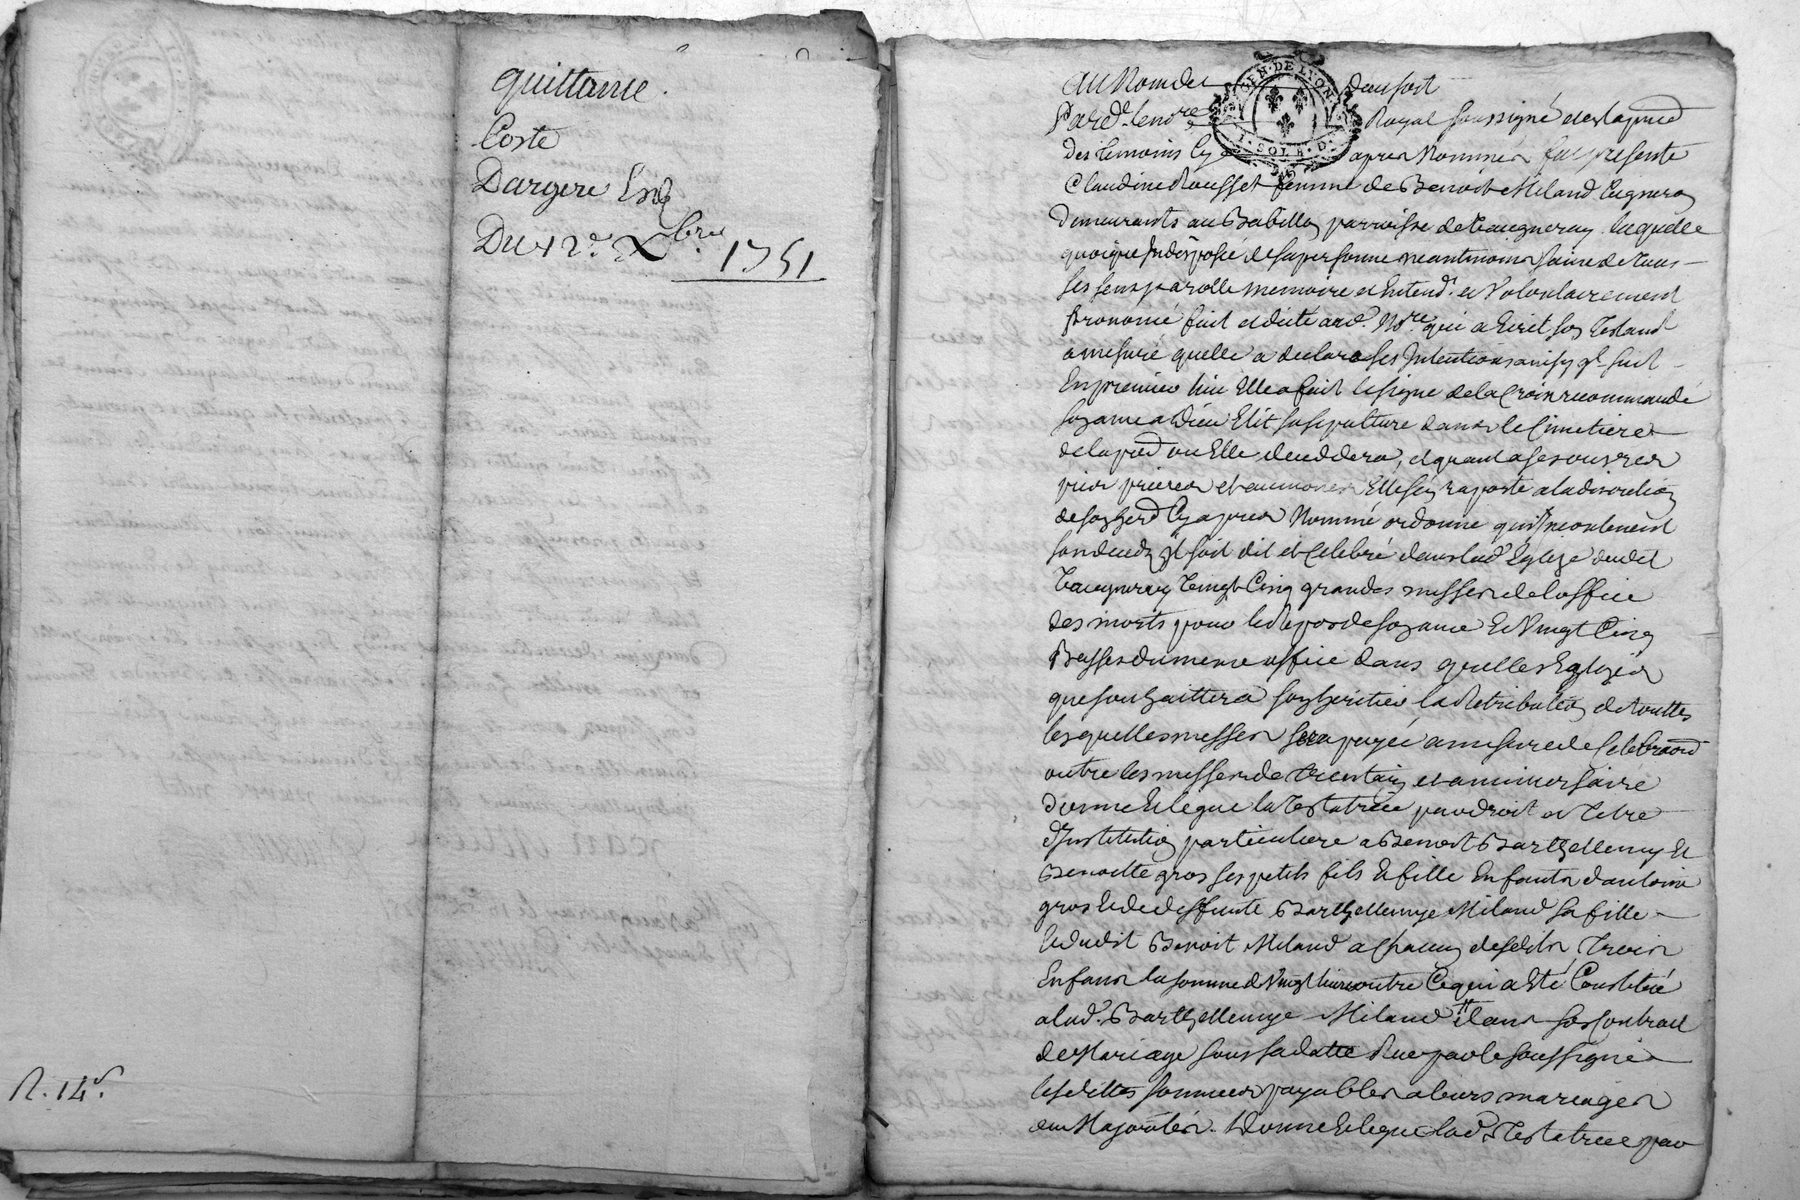 quittance.
Coste
Dargere
Du 12e Xbre 1751
R. 14s.
GEN. DE LYON
1. SOL 8. D.
Au Nom de Dieu soit
Pardt. le nore Royal soussigné et en la pnce
des temoins cy apres Nommés fut presente
Claudine Rousset femme de Benoit Miland vigneron
demeurants au Babillon parroisse de Vaugneray laquelle
quoique Indisposée de sa personne neantmoins saine de tous
ses sens parolle memoire et Entendt. et Volontairement
prononcé fait et dicté aud. Nore. qui a Ecrit son Testamt
a mesure quelle a declaré ses Intentions ainsy q. suit
En premier lieu Elle a fait le signe de la Croix recommandé
son ame a Dieu Elit sa sepulture dans le Cimetiere
de la psse ou Elle deceddera, et quant a ses œuvres
pies prieres et aumones Elle sen raporte a la discretion
de son herer Cy apres Nommé ordonne quincontinent
son deceds Il soit dit et Celebré dans lad. Eglize dudit
Vaugneray Vingt Cinq grandes messes de loffice
des morts pour le repos de son ame Et Vingt Cinq
Basses du meme office dans quelles Eglizes
que souhaittera son heritier la Retribution de touttes
lesquelles messes sera payée a mesure de
outre les messes de trentain et anniversaire
donne et legue la Testatrice par droit et Titre
dInstitution particuliere a Benoit Barthellemy Et
Benoitte gros ses petits fils Et fille Enfants dantoine
gros Et de deffunte Barthellemye Milland sa fille
Et dudit Benoit Miland a Chacun desdits trois
Enfans la somme de Vingt livres outre Ce qui a Eté Constitué
a lad. Barthellemye Miland dans son Contrat
de Mariage sous sa datte Reçu par le soussigné
lesdittes sommes payables a leurs mariages
ou Majorités. Donne Et legue lad. Testatrice par